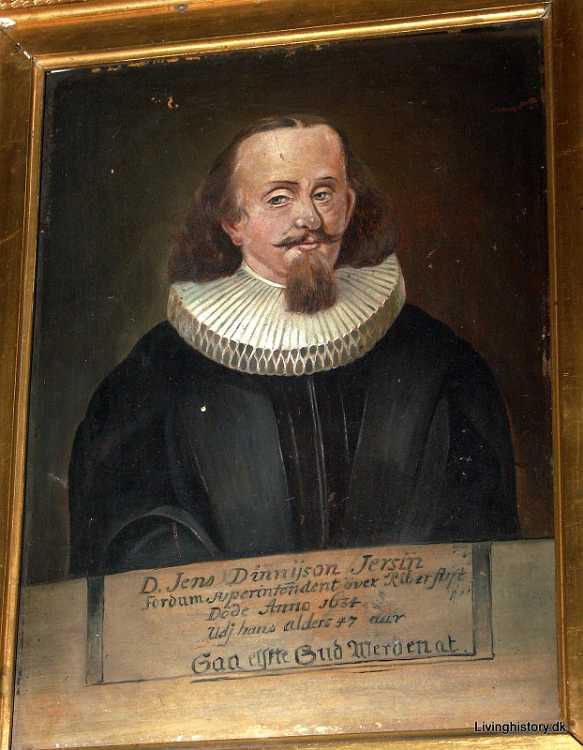 D. Jens Dinnijson Jersin
Fordum Superintendent över Riber stift
Döde Anno 1634
Udj hans alders 47 aar
Saa elste Gud Werden at.
Livinghistory.dk